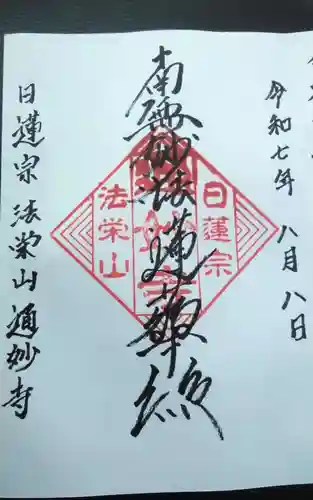 令和七年 八月八日
南無妙法蓮華経
日蓮宗
法栄山
日蓮宗 法栄山 通妙寺